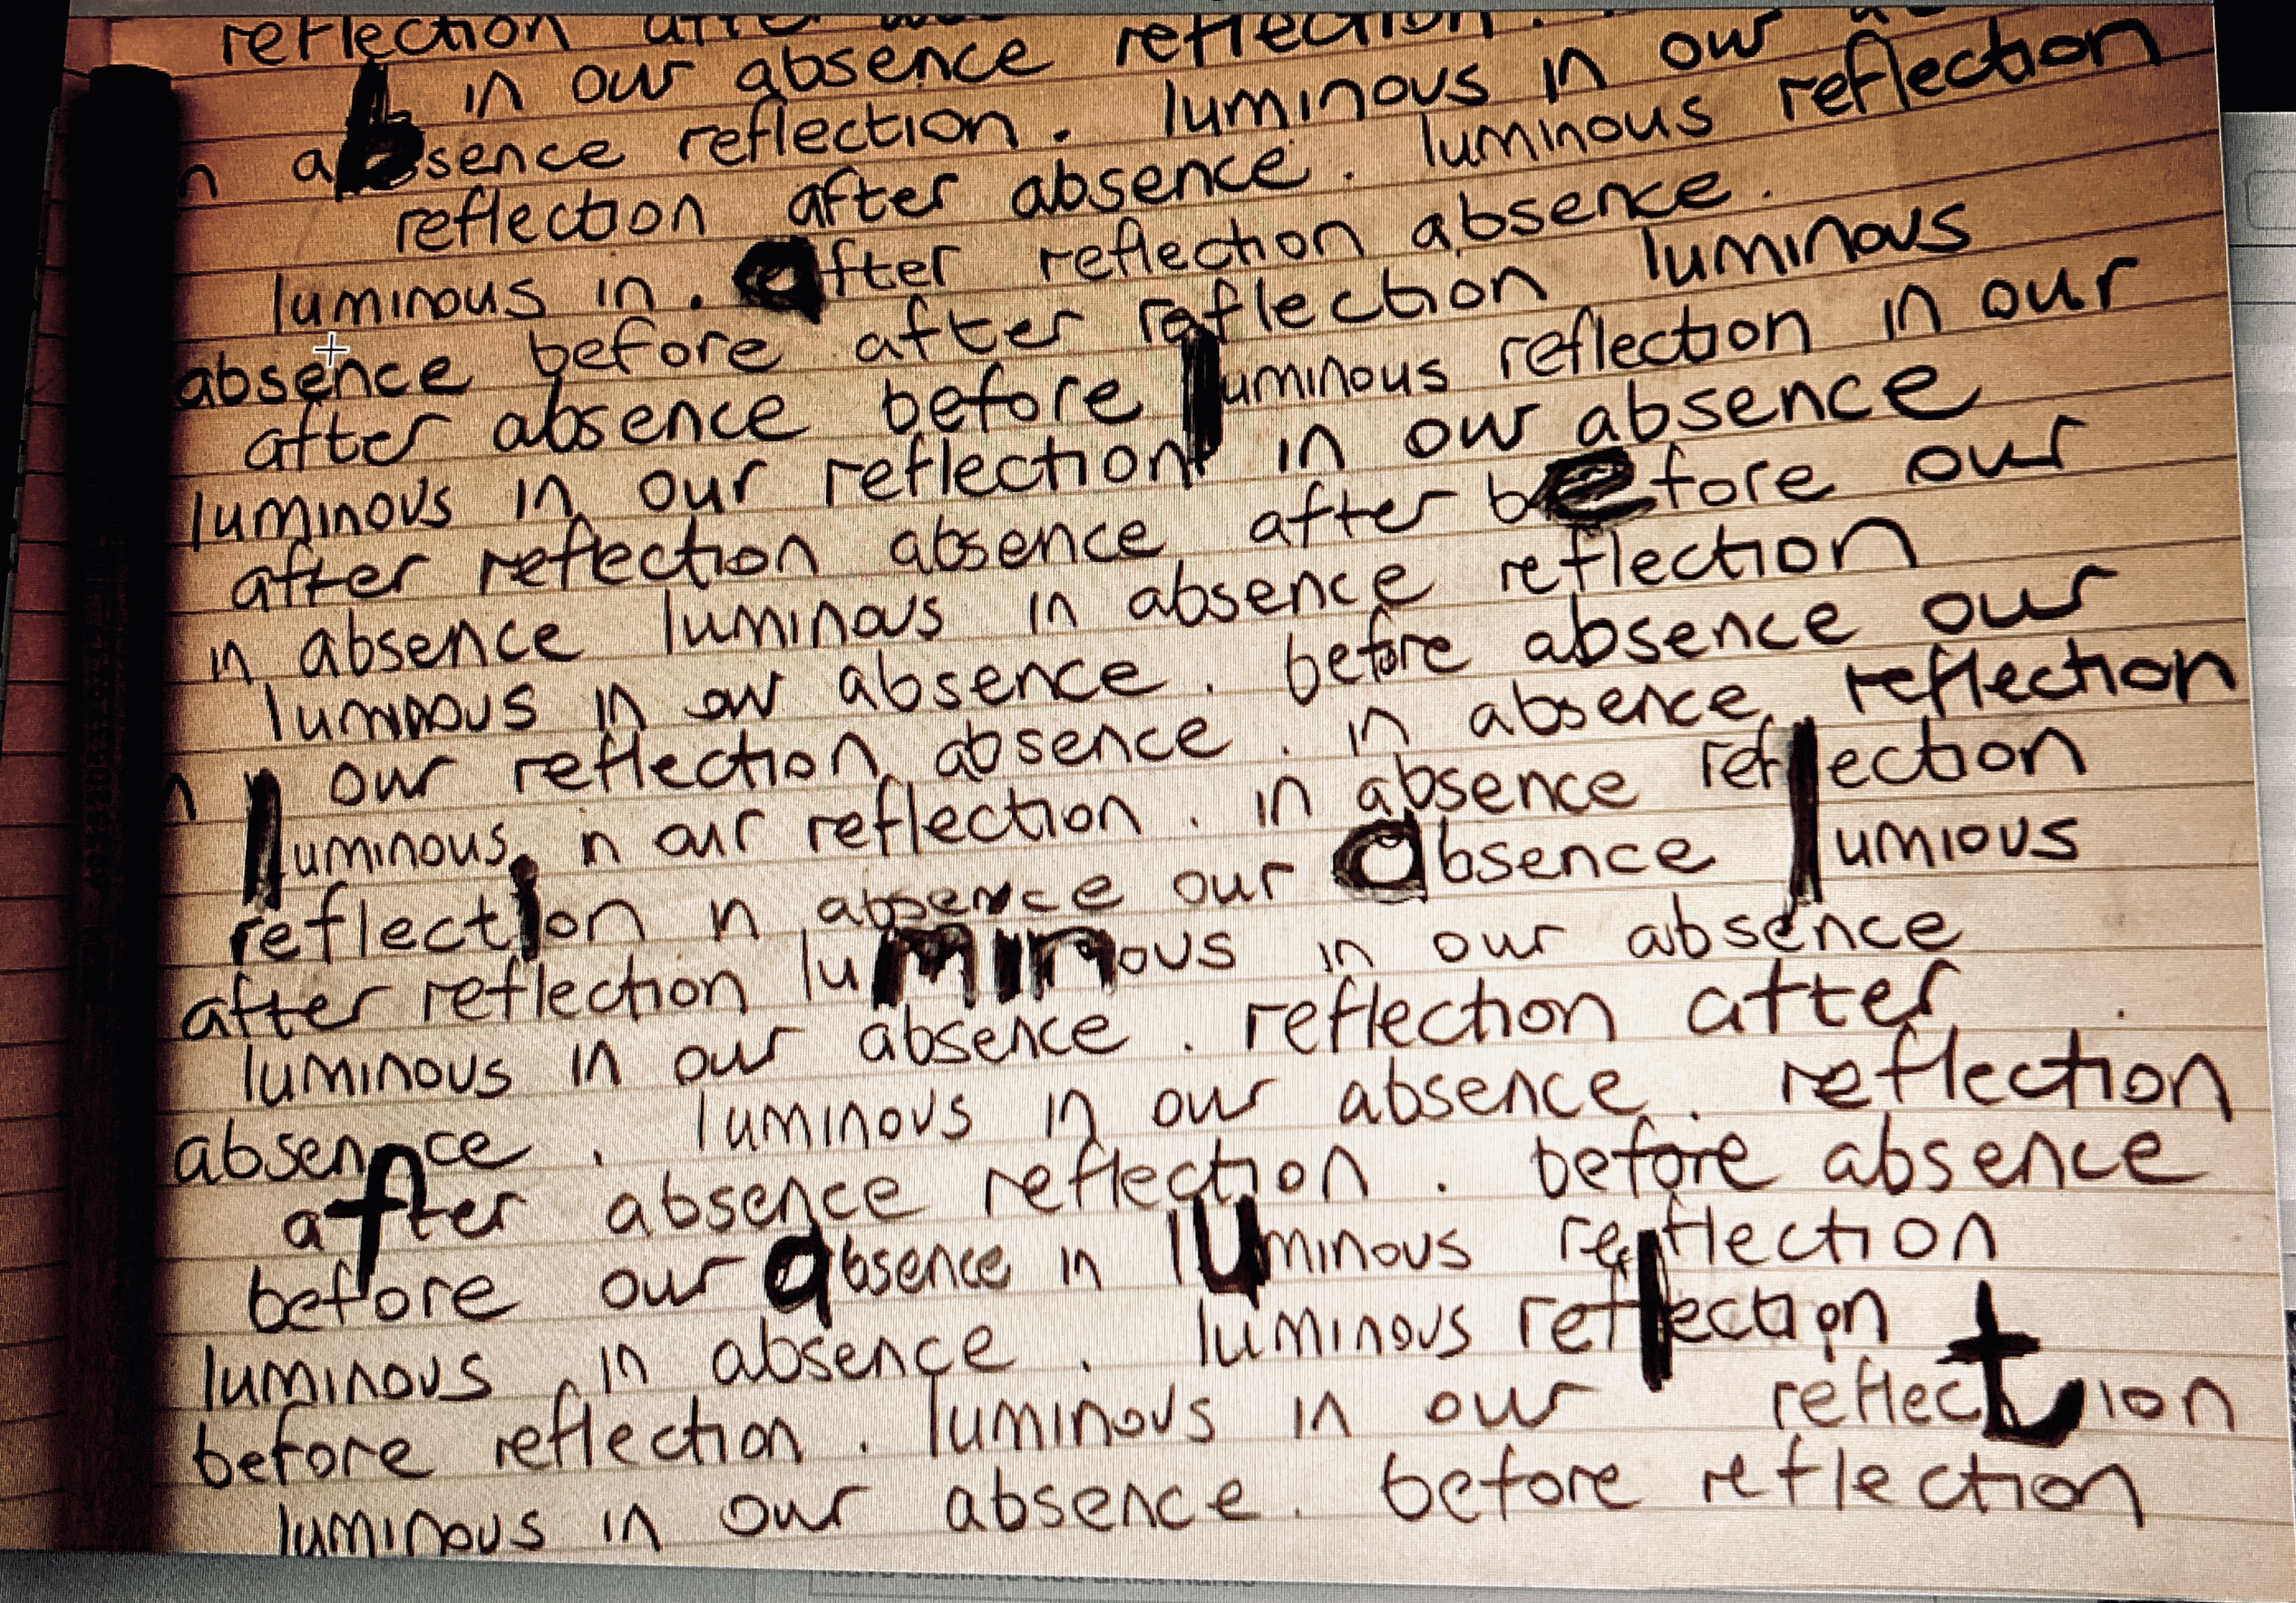 reflection
in our absence reflection.
n absence reflection. luminous in our
reflection after absence. luminous reflection
luminous in. after reflection absence.
absence before after reflection luminous
after absence before luminous reflection in our
luminous in our reflection in our absence
after reflection absence after before our
in absence luminous in absence reflection
luminous in our absence. before absence our
n our reflection absence. in absence reflection
luminous n our reflection. in absence reflection
reflection n absence our absence lumious
after reflection luminous in our absence
luminous in our absence. reflection after
absence. luminous in our absence. reflection
after absence reflection. before absence
before our absence in luminous reflection
luminous in absence. luminous reflection
before reflection. luminous in our reflection
luminous in our absence. before reflection